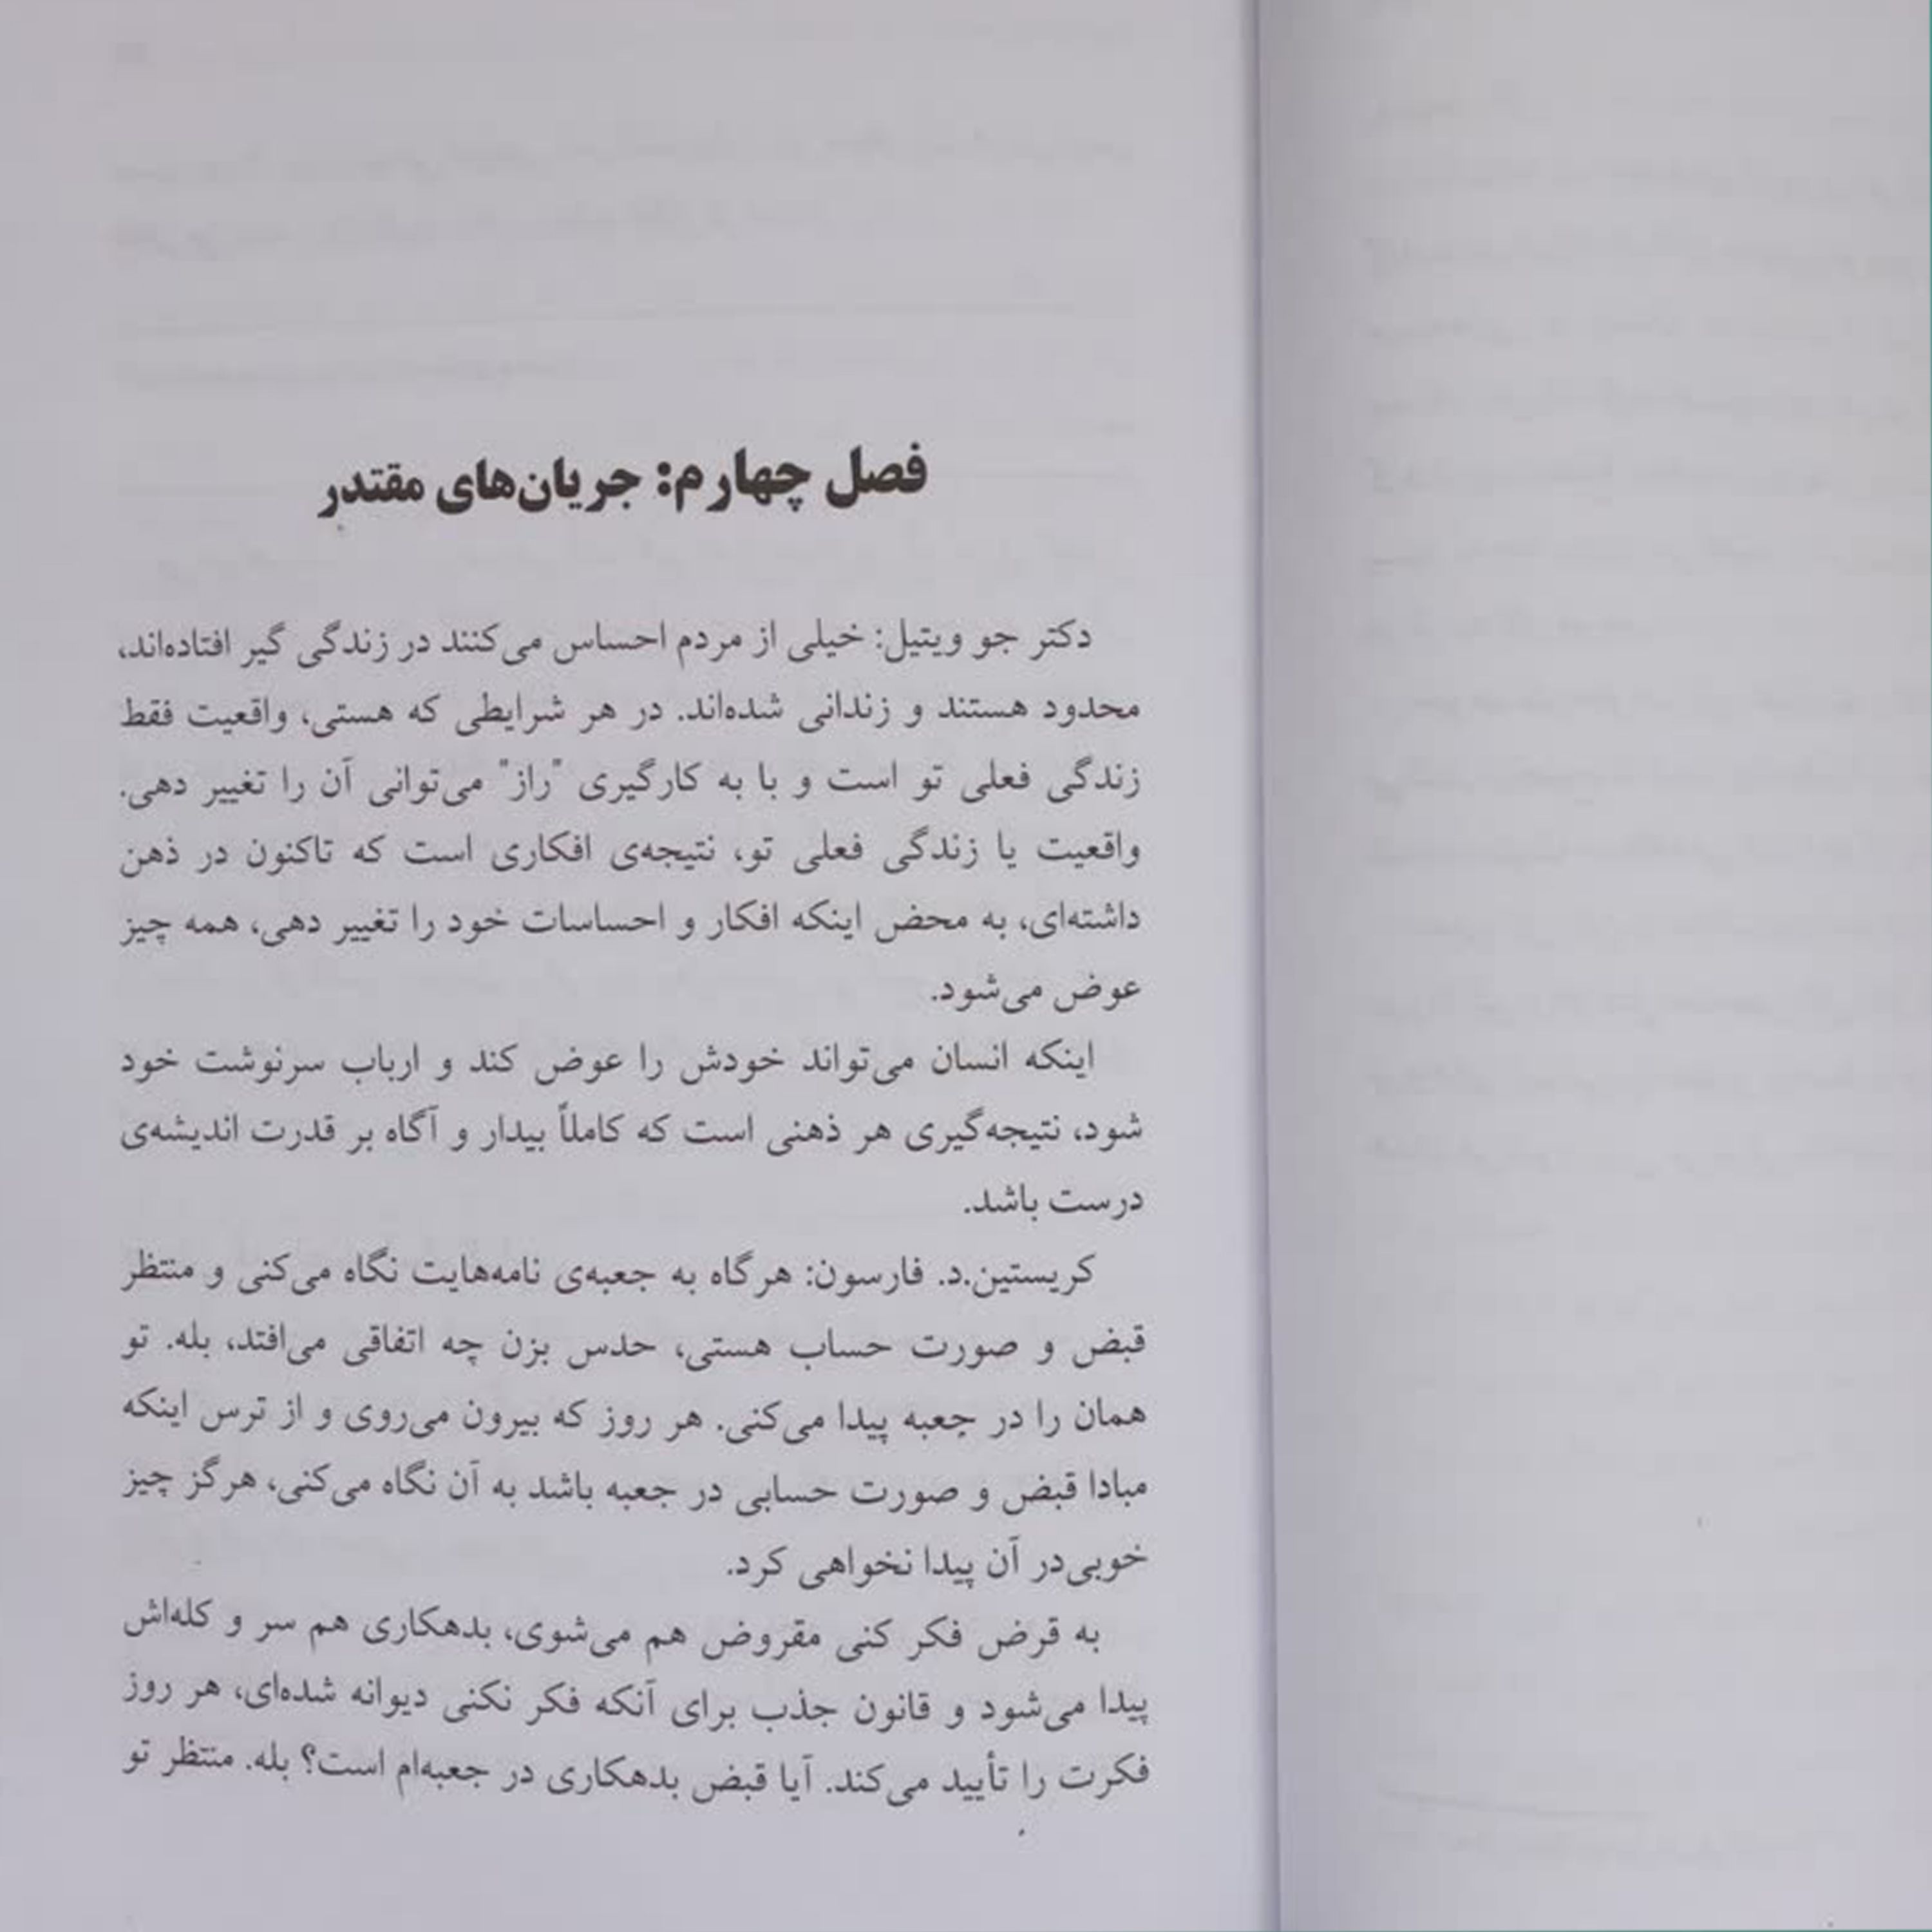 فصل چهارم: جریان‌های مقتدر
دکتر جو ویتیل: خیلی از مردم احساس می‌کنند در زندگی گیر افتاده‌اند،
محدود هستند و زندانی شده‌اند. در هر شرایطی که هستی، واقعیت فقط
زندگی فعلی تو است و با به کارگیری "راز" می‌توانی آن را تغییر دهی.
واقعیت یا زندگی فعلی تو، نتیجه‌ی افکاری است که تاکنون در ذهن
داشته‌ای، به محض اینکه افکار و احساسات خود را تغییر دهی، همه چیز
عوض می‌شود.
اینکه انسان می‌تواند خودش را عوض کند و ارباب سرنوشت خود
شود، نتیجه‌گیری هر ذهنی است که کاملاً بیدار و آگاه بر قدرت اندیشه‌ی
درست باشد.
کریستین.د. فارسون: هرگاه به جعبه‌ی نامه‌هایت نگاه می‌کنی و منتظر
قبض و صورت حساب هستی، حدس بزن چه اتفاقی می‌افتد، بله. تو
همان را در جعبه پیدا می‌کنی. هر روز که بیرون می‌روی و از ترس اینکه
مبادا قبض و صورت حسابی در جعبه باشد به آن نگاه می‌کنی، هرگز چیز
خوبی‌در آن پیدا نخواهی کرد.
به قرض فکر کنی مقروض هم می‌شوی، بدهکاری هم سر و کله‌اش
پیدا می‌شود و قانون جذب برای آنکه فکر نکنی دیوانه شده‌ای، هر روز
فکرت را تأیید می‌کند. آیا قبض بدهکاری در جعبه‌ام است؟ بله. منتظر تو